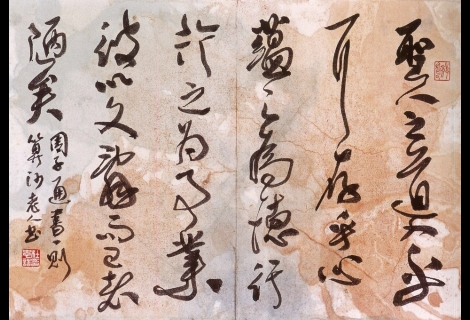 聖人之道入乎
耳存乎心
蘊之為德行
行之為事業
彼以文辭而已者
陋矣
周子通書一則
算沙老人書